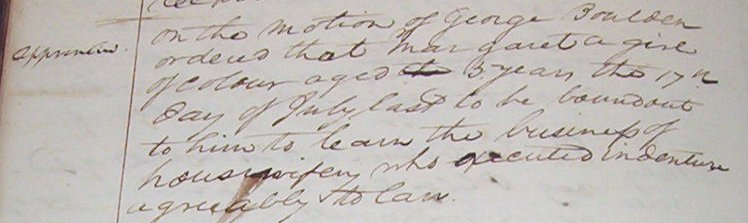 apprentice
on the motion of George Boulden
ordered that Margaret a girl
of colour aged 3 years the 17th
day of July last to be boundout
to him to learn the business of
housewifery who executed indenture
agreeably to law.